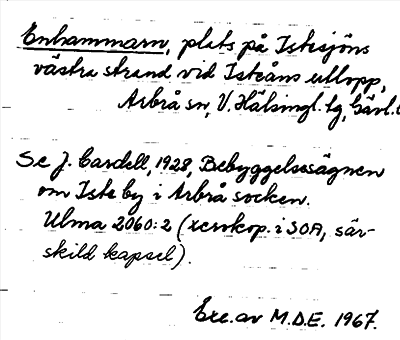 Enhammarn, plats på Istesjöns
västra strand vid Isteåns utlopp,
Arbrå sn, V. Hälsingl. tg, Gävl.
Se J. Cardell, 1928, Bebyggelsesägnen
om Iste by i Arbrå socken.
Ulma 2060:2 (xerokop. i SOA, sär-
skild kapsel).
Exc. av M.D.E. 1967.